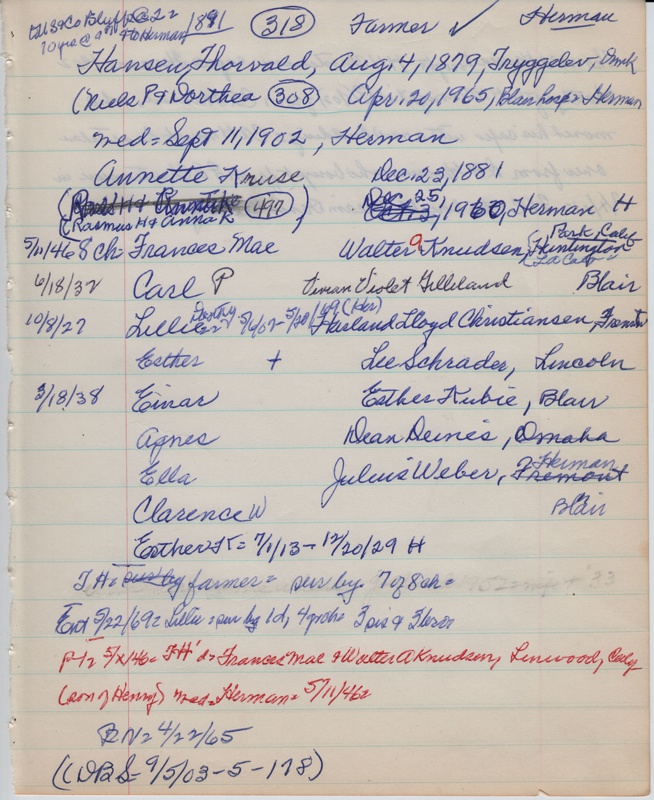 EU St Co Bluffs @ 22 1891 (318) Farmer ✓ Herman
10 yrs @ to Herman
Hansen, Thorvald, Aug. 4, 1879, Tryggelev, Dmk
(Niels P + Dorthea (308) Apr. 20, 1965, Blair hosp = Herman
med = Sept 11, 1902, Herman
Annette Kruse Dec. 23, 1881
(497) Dec. 25, 1960, Herman H
(Rasmus H + Anna K
5/11/46 8 ch = Frances Mae Walter A Knudsen, Huntington Park, Calif
6/18/32 Carl P Vivian Violet Gilleland Blair
10/8/27 Lillie Dorthy 5/6/02 - 5/20/69 (Her) Harland Lloyd Christiansen, Fremont
Esther + Lee Schrader, Lincoln
3/18/38 Einar Esther Kubie, Blair
Agnes Dean Deines, Omaha
Ella Julius Weber, Fremont ? Herman
Clarence W Blair
Esther K = 7/1/13 - 12/20/29 H
TH = sur by farmer = sur by 7 of 8 ch =
Ent 5/22/69 = Lillie = sur by 1d, 4 grch = 3 sis & 3 bros
PT = 5/ /46 = TH's d = Frances Mae + Walter A Knudsen, Linwood, Calif
(son of Henry) med = Herman = 5/11/46 =
BN = 4/22/65
((DBS = 9/5/03 - 5 - 178)